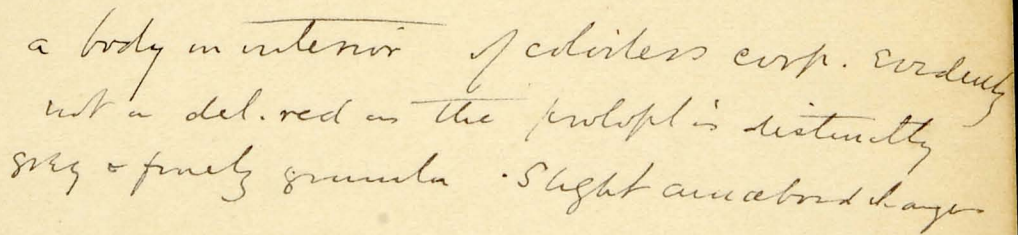 a body in interior of colorless corp. Evidently
not a del. red as the protopl is distinctly
grey & finely granular. Slight amoeboid changes